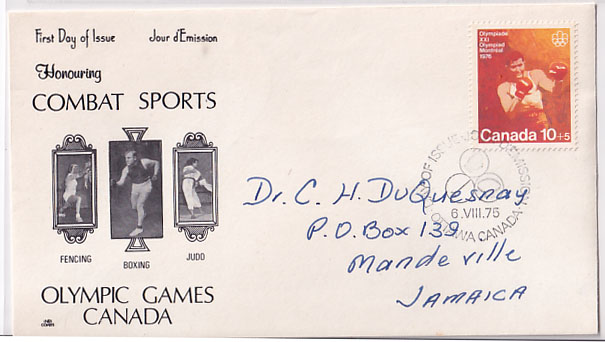 First Day of Issue Jour d'Emission
Honouring
COMBAT SPORTS
FENCING BOXING JUDO
OLYMPIC GAMES
CANADA
Olympiade
XXI
Olympiad
Montréal
1976
Canada 10+5
DAY OF ISSUE JOUR D'EMISSION
6.VIII.75
OTTAWA CANADA
Dr. C. H. DuQuesnay
P.O. Box 139
Mandeville
JAMAICA